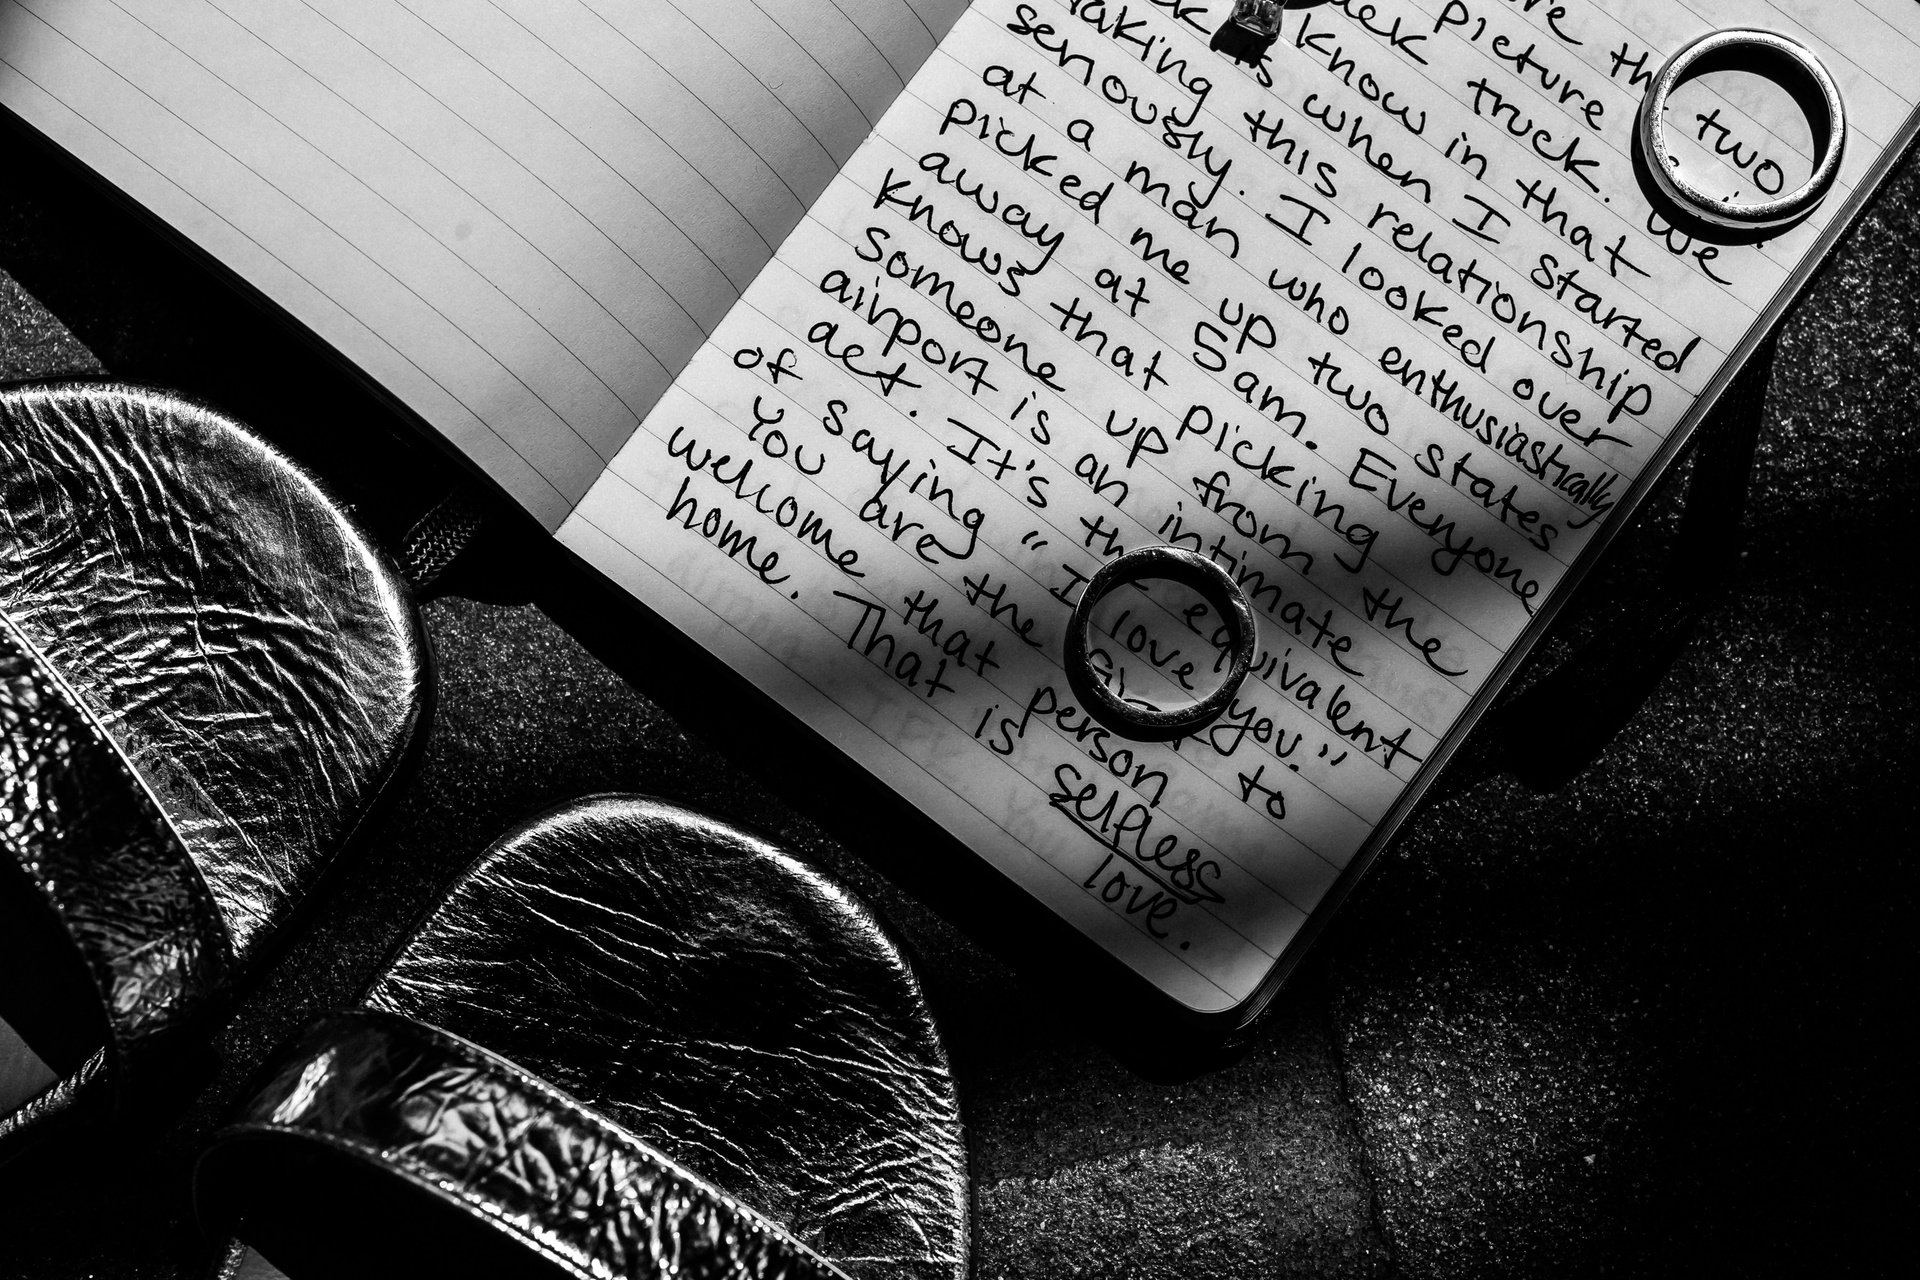 two
picture
truck. We
know in that
is when I started
taking this relationship
seriously. I looked over
at a man who enthusiastically
picked me up two states
away at 5am. Everyone
knows that picking
someone up from the
airport is an intimate
act. It's the equivalent
of saying "I love you."
You are the to
welcome that person
home. That is selfless
love.